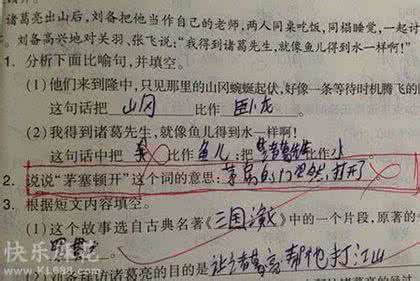 诸葛亮出山后，刘备把他当作自己的老师，两人同桌吃饭，同榻睡觉，一起讨
刘备高兴地对关羽、张飞说：“我得到诸葛先生，就像鱼儿得到水一样啊！”
1. 分析下面比喻句，并填空。
(1) 他们来到隆中，只见那里的山冈蜿蜒起伏，好像一条等待时机腾飞的
这句话把 山冈 比作 卧龙
(2) 我得到诸葛先生，就像鱼儿得到水一样啊！
这句话中 比作 鱼儿；把 诸葛先生 比作 水
2. 说说“茅塞顿开”这个词的意思：茅房的门忽然打开了
3. 根据短文内容填空。
(1) 这个故事选自古典名著《三国演义》中的一个片段，原著的
罗贯中
刘备拜访诸葛亮的目的是 让诸葛亮帮他打江山
快乐麻花
WWW.KL688.COM